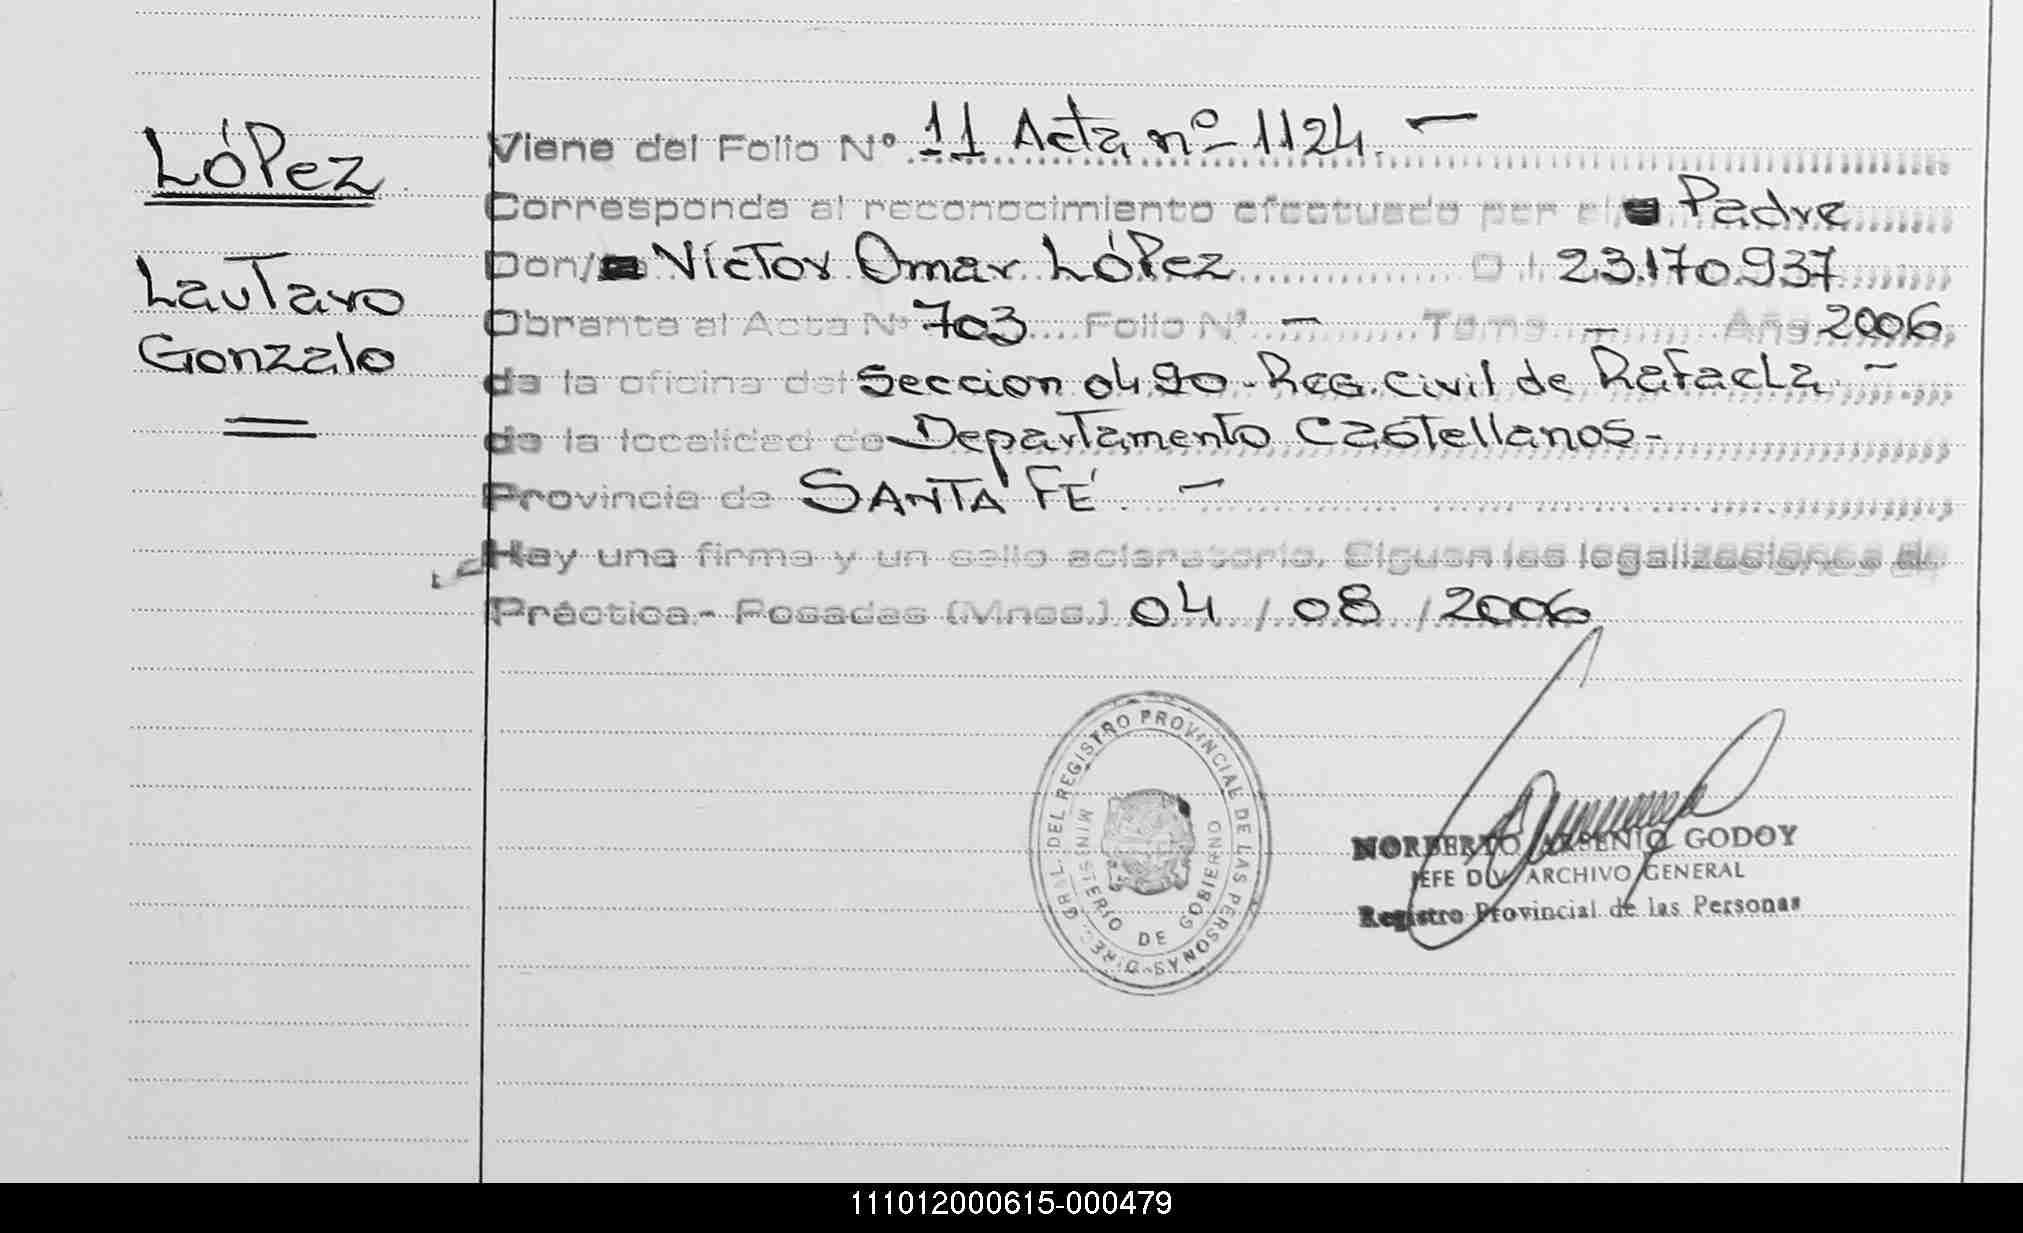 López
Lautaro
Gonzalo
Viene del Folio Nº 11 Acta nº 1124. —
Corresponde al reconocimiento efectuado por el Padre
Don/ Víctor Omar López D.I. 23.170.937
Obrante al Acta Nº 703 Folio Nº — Tomo — Año 2006
de la oficina del Seccion 0490 - Reg. Civil de Rafaela —
de la localidad de Departamento Castellanos -
Provincia de SANTA FÉ —
Hay una firma y un sello aclaratorio. Siguen las legalizaciones de
Práctica.- Posadas (Mnes.) 04 / 08 / 2006
DIREC. GRAL. DEL REGISTRO PROVINCIAL DE LAS PERSONAS
MINISTERIO DE GOBIERNO
NORBERTO ARSENIO GODOY
JEFE DIV. ARCHIVO GENERAL
Registro Provincial de las Personas
111012000615-000479